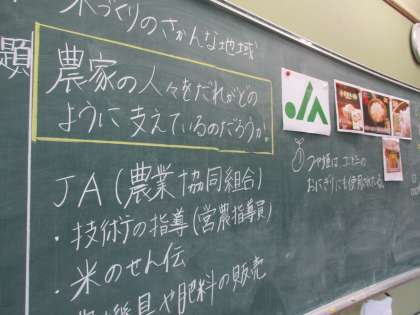 米づくりのさかんな地域
題
農家の人々をだれがどの
ように支えているのだろうか。
JA(農業協同組合)
・技術の指導(営農指導員)
・米のせん伝
機具や肥料の販売
JA
つや姫は コンビニの
おにぎりにも使用されている。